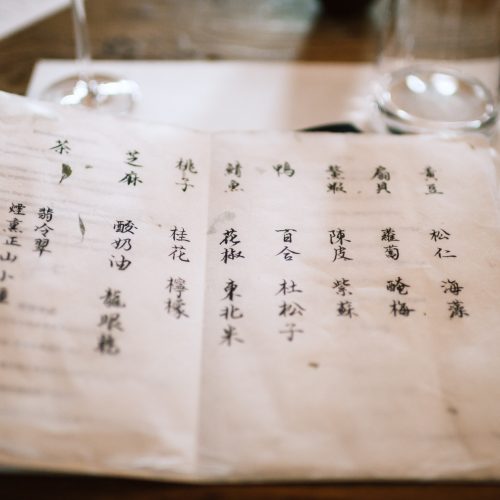 黃豆 松仁 海藻
扇貝 蘿蔔 醃梅
螯蝦 陳皮 紫蘇
鴨 百合 杜松子
鯖魚 花椒 東北米
桃子 桂花 檸檬
芝麻 酸奶油 龍眼
茶 翡冷翠
煙熏正山小種